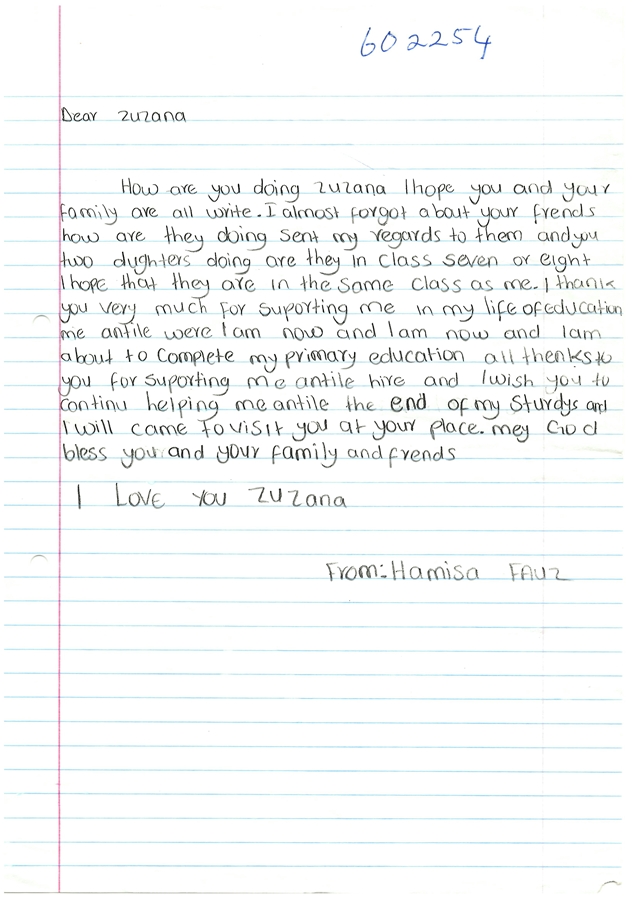 602254
Dear zuzana
How are you doing zuzana I hope you and your
family are all write. I almost forgot about your frends
how are they doing sent my regards to them and you
two dughters doing are they in class seven or eight
I hope that they are in the same class as me. I thank
you very much for suporting me in my life of education
me antile were I am now and I am now and I am
about to complete my primary education all thenks to
you for suporting me antile hire and I wish you to
continu helping me antile the end of my sturdys and
I will came to visit you at your place. mey God
bless you and your family and frends
I LOVE YOU ZUZana
From:- Hamisa FAUZ